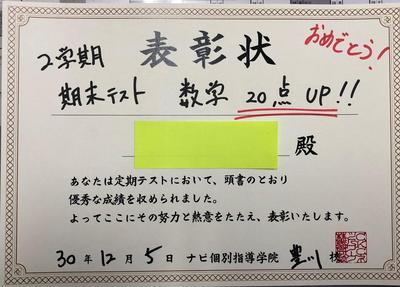 表彰状
おめでとう!
2学期
期末テスト 数学 20点 UP!!
殿
あなたは定期テストにおいて、頭書のとおり
優秀な成績を収められました。
よってここにその努力と熱意をたたえ、表彰いたします。
30年12月5日 ナビ個別指導学院 豊川校